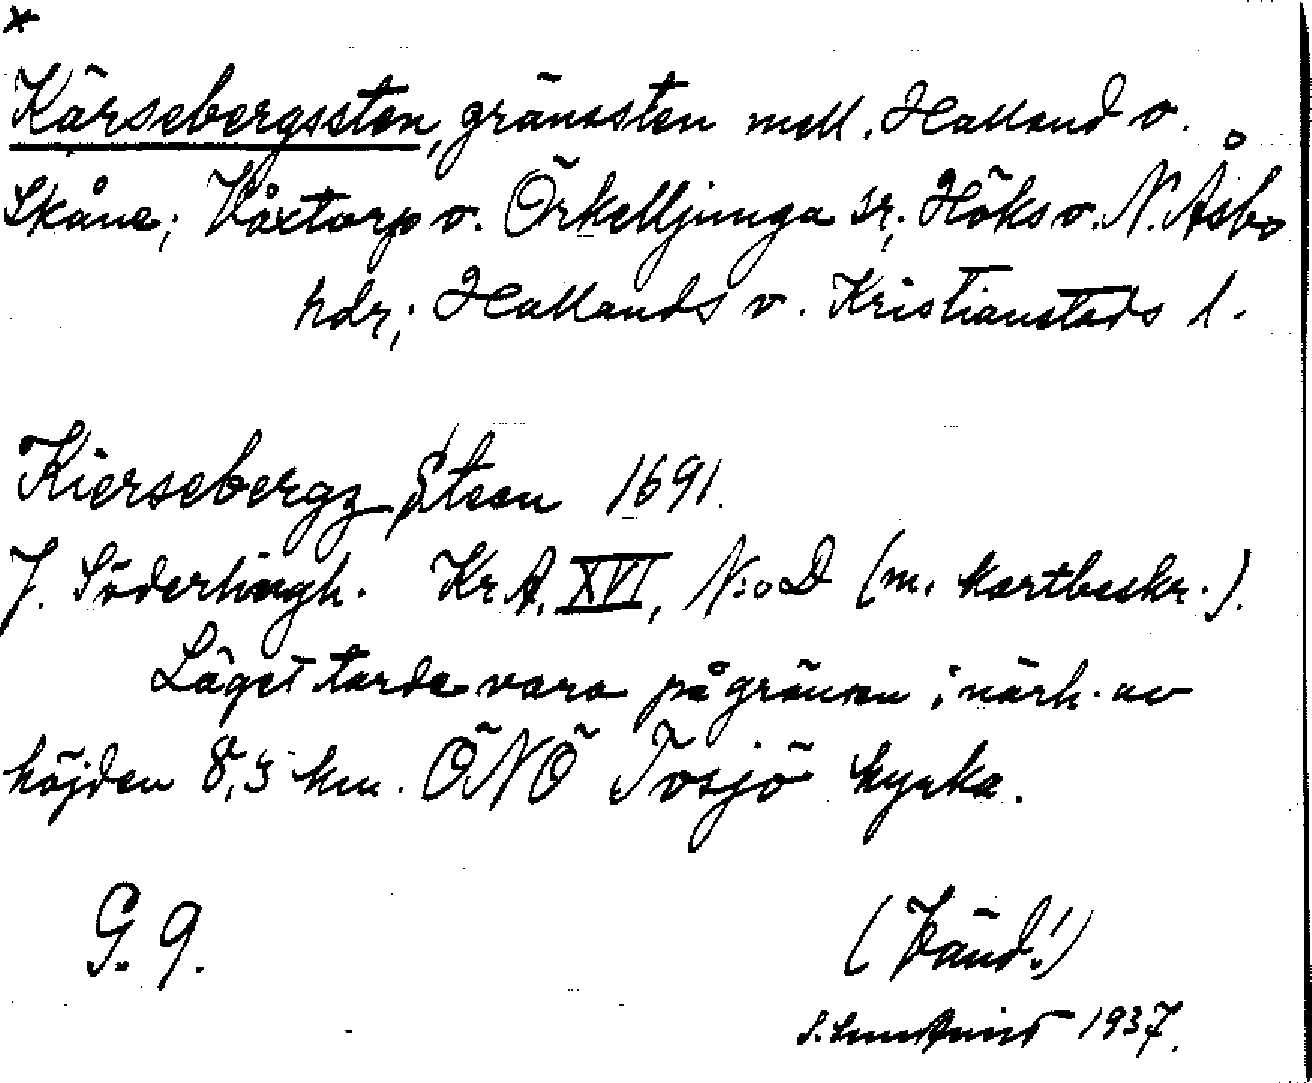 *
Kärsebergssten, gränssten mell. Halland o.
Skåne; Våxtorp o. Örkelljunga sr; Höks o. N. Åsbo
hdr; Hallands o. Kristianstads l.
Kiersebergz Steen 1691.
J. Söderlingh. Kr.A. XVI, N:o D (m. kartbeskr.).
Läget torde vara på gränsen i närh. av
höjden 8,5 km. ÖNÖ Tosjö kyrka.
G. 9.
(Vänd!)
1937.